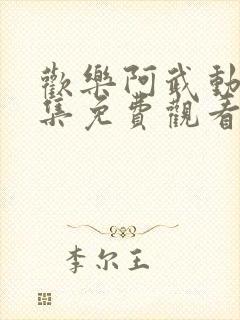 歡樂阿武動
集免費觀看
李尔王